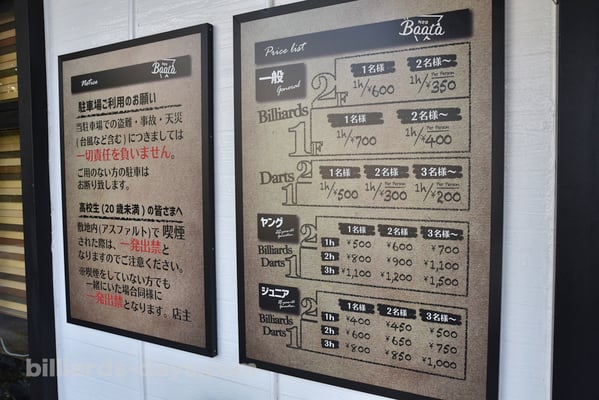 Neo
Bagta
Notice
駐車場ご利用のお願い
当駐車場での盗難・事故・天災
(台風など含む)につきましては
一切責任を負いません。
ご用のない方の駐車は
お断り致します。
高校生(20歳未満)の皆さまへ
敷地内(アスファルト)で喫煙
された際は、一発出禁と
なりますのでご注意ください。
※喫煙をしていない方でも
一緒にいた場合同様に
一発出禁となります。店主
Neo
Bagta
Price list
一般
General
1名様
2名様〜
Billiards 2F
1h/¥600
Per Person
1h/¥350
1名様
2名様〜
1F
1h/¥700
Per Person
1h/¥400
1名様
2名様
3名様〜
Darts 1
1h/¥500
Per Person
1h/¥300
Per Person
1h/¥200
ヤング
Billiards 2
Darts 1
1名様 2名様 3名様〜
1h ¥500 ¥600 ¥700
2h ¥800 ¥900 ¥1,100
3h ¥1,100 ¥1,200 ¥1,500
ジュニア
Billiards 2
Darts 1
1名様 2名様 3名様〜
1h ¥400 ¥450 ¥500
2h ¥600 ¥650 ¥750
3h ¥800 ¥850 ¥1,000